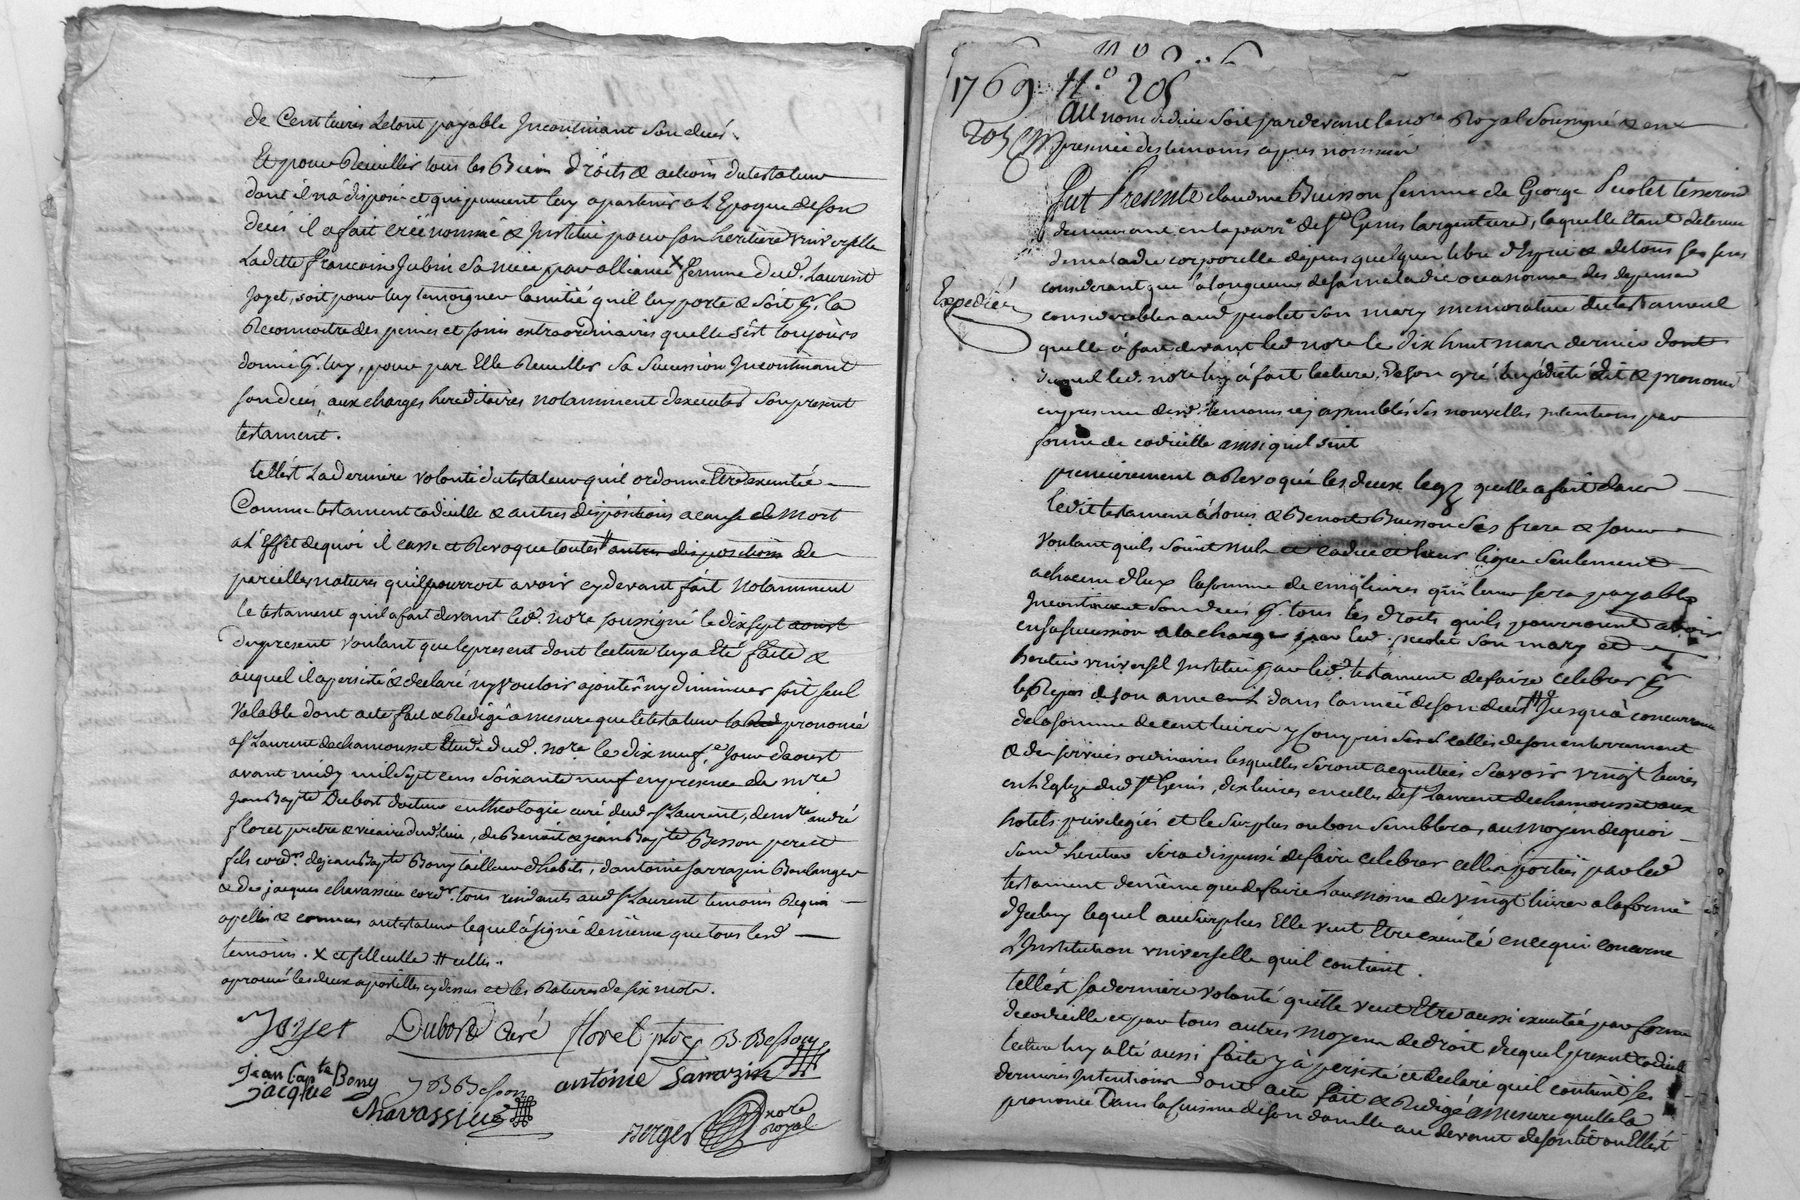 de Cent livres Le tout payable Incontinant son decès.
Et pour Recuillir tous les Biens Droits & actions du testateur
dont il n'a disposé et qui peuvent luy apartenir a L'Epoque de son
decès il a fait créé nommé & Institué pour son heritière vniverselle
Laditte françoise Jubin sa niece par alliance × femme dud. Laurent
Joyet, soit pour luy temoigner l'amitié qu'il luy porte & soit pr. la
Reconnoitre des peines et soins extraordinaires quelle s'est toujours
donné pr. luy, pour par Elle Recuiller sa sucession Incontinant
son decès, aux charges hereditaires notamment d'executer son present
testament.
tell'est La dernière volonté du testateur qu'il ordonne Etre executée
Comme testament codicille & autres dispositions a cause de Mort
a L'Effet de quoi il casse et Revoque toutes # autres dispositions de
pareilles natures qu'il pourroit avoir cy devant fait Notamment
le testament qu'il a fait devant led. nore soussigné le dix sept aoust
du present voulant que le present dont lecture luy a Eté faite &
auquel il a persisté & declaré ny vouloir ajouter ny diminuer soit seul
valable dont acte fait & Redigé a mesure que le testateur la prononcé
a St Laurent de chamousset Etude dud. nore le dix neufe. Jour d'aoust
avant midy mil sept cens soixante neuf en presence de mre
Jean Bapte Dubost docteur en theologie curé dud St Laurent, de mre andré
floret pretre & vicaire dud lieu, de Benoit & jean Bapte Besson pere et
fils cordrs. de jean Bapte Bony tailleur d'habits, d'antoine sarrazin Boulanger
& de jacques chavassieu cordr. tous residants aud St Laurent temoins Requis
apellés & connus au testateur lequel a signé de même que tous lesd
temoins. × et filleulle # celles.
aprouvé les deux apostilles cy dessus et les Ratures de six mots.
Joyet Dubost Curé floret ptre B. Besson
Jean Bapte Bony J B Besson antoine Sarrazin
jacque Chavassieu
Berger nore Royal
1769 N.° 205
205
au nom de dieu soit pardevant le nore Royal soussigné & en
presence des temoins apres nommés
Fut Presente claudine Buisson femme de George Piolet tisserand
demeurant en la parre de St Genis l'argentiere, laquelle étant detenue
de maladie corporelle depuis quelque tems libre d'Esprit & de tous ses sens
considerant que la longueur de sa maladie occasionne des depenses
Expediée
considerables aud piolet son mary memorative du testament
quelle a fait devant led nore le dix huit mars dernier dont
duquel led. nore luy a fait lecture, de son gré a dicté dit & prononcé
en presence desd. temoins icy assemblés ses nouvelles intentions par
forme de codicille ainsi qu'il suit
premierement a Revoqué les deux legs quelle a fait dans
ledit testament à & Benoite Buisson ses frere & soeur
voulant qu'ils soient nuls et caducs et leur legue seulement
a chacun d'Eux la somme de cinq livres qui leur sera payable
Incontinant son decès pr. tous les droits qu'ils pourroient avoir
en sa sucession a la charge par led. piolet son mary et
heritier vniversel Institué par led. testament de faire celebrer pr
le Repos de son ame dans l'année de son decès # Jusqu'à concurrance
de la somme de cent livres y compris celles de son enterrement
& des services ordinaires lesquelles seront acquittées sçavoir vingt livres
en L'Eglize dud St Genis, dix livres en celles de St Laurent de chamousset aux
hotels privilegiés et le surplus ou bon semblera, au moyen de quoi
sond heritier sera dispensé de faire celebrer celles portées par led
testament de même que de faire L'aumosne de vingt livres a la forme
d'Iceluy lequel au surplus Elle veut Etre executé en ce qui concerne
L'Institution vniverselle qu'il contient.
tell'est sa dernière volonté qu'elle veut Etre aussi executée par forme
de codicille et par tous autres moyens de droit duquel present codicille
lecture luy a Eté aussi faite y a persisté et declaré qu'il contient ses
dernieres Intentions dont acte fait & Redigé a mesure quelle la
prononcé Dans la cuisine de son domicille au devant de son lit ou Ell'est